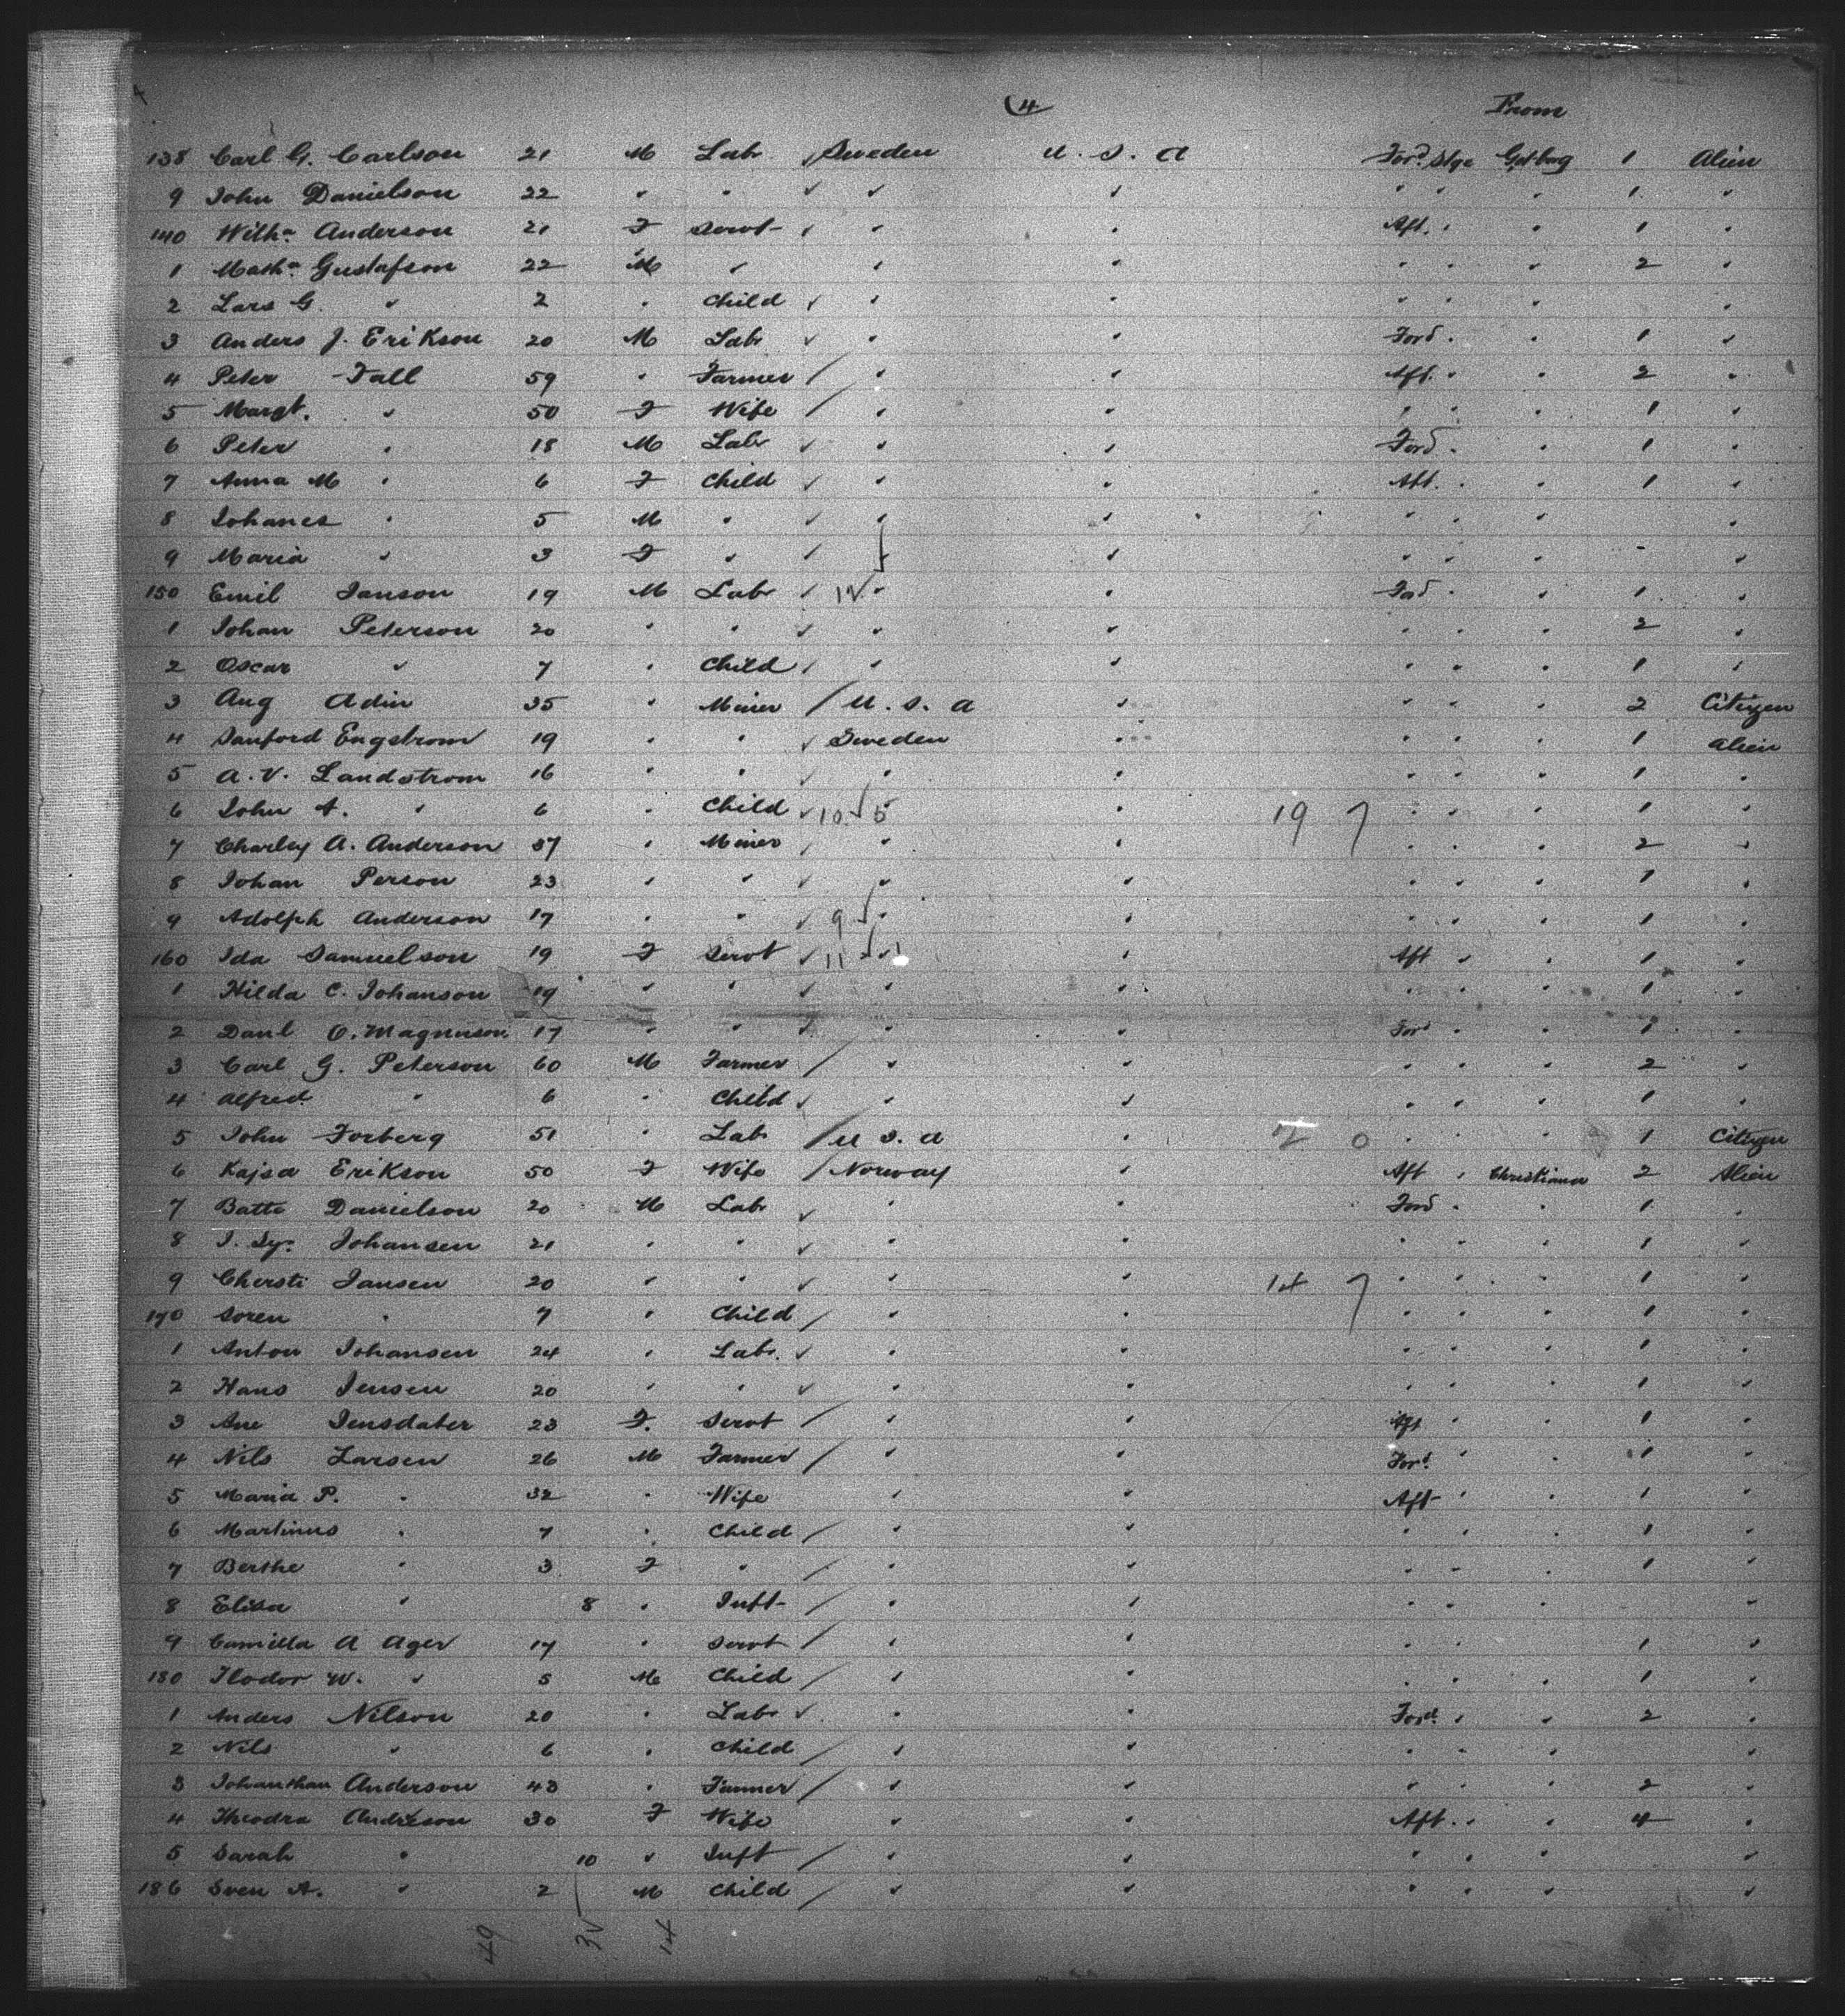 (4 From
138 Carl G. Carlson 21 M Labr Sweden U. S. A Ford. Stge Got-burg 1 Alien
9 John Danielson 22 " " " " " " " 1 "
140 Wilha. Anderson 21 F Servt " " Aft. " " 1 "
1 Matha. Gustafson 22 M " " " " " " 2 "
2 Lars G. " 2 " Child " " " " " "
3 Anders J. Erikson 20 M Labr " " Ford " " 1 "
4 Peter Fall 59 " Farmer " " Aft. " " 2 "
5 Margt. " 50 F Wife " " " " " 1 "
6 Peter " 18 M Labr " " Ford " " 1 "
7 Anna M " 6 F Child " " Aft. " " 1 "
8 Johanes " 5 M " " " " " " "
9 Maria " 3 F " " " " " " - "
150 Emil Janson 19 M Labr " " Ford " " 1 "
1 Johan Peterson 20 " " " " " " " 2 "
2 Oscar " 7 " Child " " " " " 1 "
3 Aug Adin 35 " Miner U. S. A " " " " 2 Citizen
4 Sanford Engstrom 19 " " Sweden " " " " 1 Alien
5 A. V. Landstrom 16 " " " " " " " 1 "
6 John A. " 6 " Child 10 5 " 19 7 " " " 1 "
7 Charley A. Anderson 37 " Miner " " " " " 2 "
8 Johan Person 23 " " " " " " " 1 "
9 Adolph Anderson 17 " " 9 " " " " " 1 "
160 Ida Samuelson 19 F Servt 11 " " Aft " " 1 "
1 Hilda C. Johanson 19 " " " " " " " 1 "
2 Danl O. Magnuson 17 " " " " Ford " " 1 "
3 Carl G. Peterson 60 M Farmer " " " " " 2 "
4 Alfred " 6 " Child " " " " " 1 "
5 John Forberg 51 " Labr U S. A " 2 0 " " " 1 Citizen
6 Kajsa Erikson 50 F Wife Norway " Aft " Christiana 2 Alien
7 Batte Danielson 20 M Labr " " Ford " " 1 "
8 J. Johansen 21 " " " " " " " 1 "
9 Chersti Jansen 20 " " " " 14 7 " " " 1 "
170 Soren " 7 " Child " " " " " 1 "
1 Anton Johansen 24 " Labr. " " " " " 1 "
2 Hans Jensen 20 " " " " " " " 1 "
3 Ane Jensdater 23 F. Servt " " Aft " " 1 "
4 Nils Larsen 26 M Farmer " " Ford. " " 1 "
5 Maria P. " 32 " Wife " " Aft " " 1 "
6 Martinus " 7 " Child " " " " " 1 "
7 Berthe " 3 F " " " " " " 1 "
8 Elisa " 8 " Inft " " " " " "
9 Camilla A Ager 17 " Servt " " " " 1 "
180 Flodor W. " 5 M Child " " " " " 1 "
1 Anders Nilson 20 " Labr " " Ford. " " 2 "
2 Nils " 6 " Child " " " " " "
3 Johanthan Anderson 43 " Farmer " " " " " 2 "
4 Theodra Andreson 30 F Wife " " Aft. " " 4 "
5 Sarah " 10 " Inft " " " " " "
186 Sven A. " 2 M Child " " " " " "
49 14